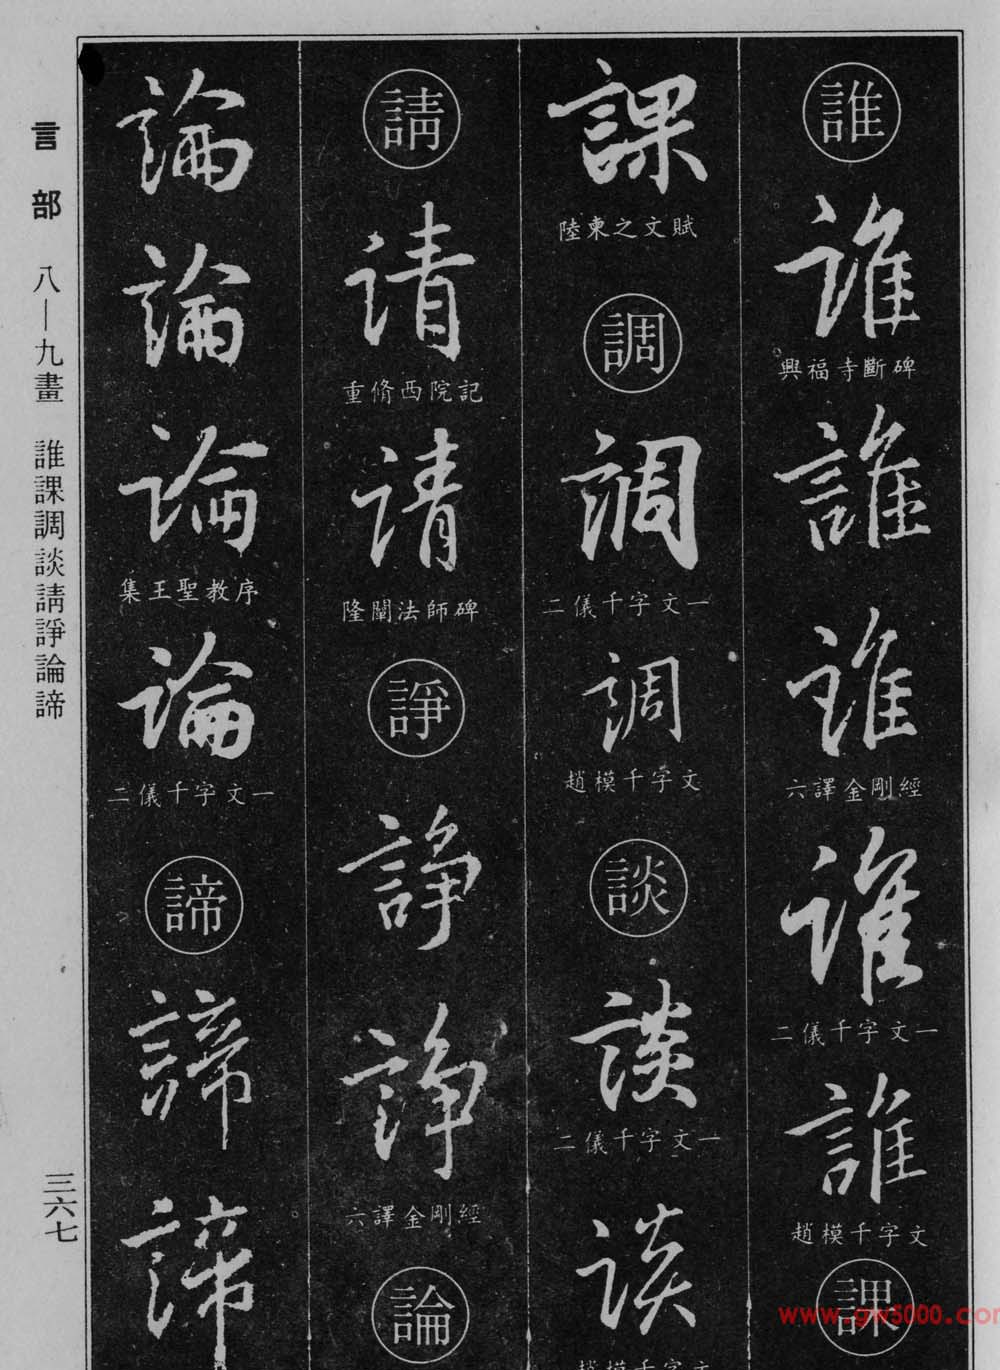 誰
誰
興福寺斷碑
誰
誰
六譯金剛經
誰
二儀千字文一
誰
趙模千字文
課
課
陸柬之文賦
調
調
二儀千字文一
調
趙模千字文
談
談
二儀千字文一
談
趙模千字文
請
请
重脩西院記
请
隆闡法師碑
諍
諍
诤
六譯金剛經
論
論
論
论
集王聖教序
论
二儀千字文一
諦
諦
諦
言部 八—九畫 誰課調談請諍論諦
三六七
www.gw5000.com